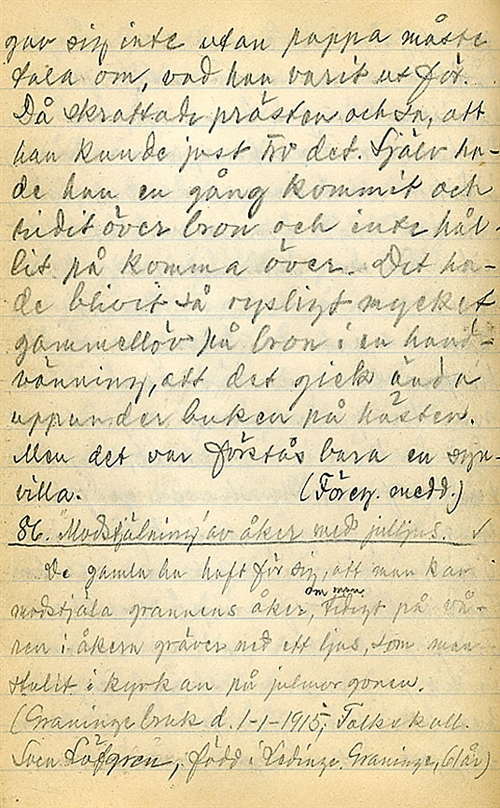 gav sig inte utan pappa måste
tala om, vad han varit ut för.
Då skrattade prästen och sa, att
han kunde just tro det. Själv ha-
de han en gång kommit och
ridit över bron och inte hål-
lit på komma över. Det ha-
de blivit så rysligt mycket
gammellöv på bron i en hand-
vänning, att det gick ända
uppunder buken på hästen.
Men det var förstås bara en syn-
villa. (Föreg. medd.)
86. "Modstjälning" av åker med julljus. ✓
De gamla ha haft för sig, att man kan
modstjäla grannens åker, om man tidigt på vå-
ren i åkern gräver ned ett ljus, som man
stulit i kyrkan på julmorgonen.
(Graninge bruk d. 1-1-1915, Folkskoll.
Sven Löfgren, född i Ledinge, Graninge, 61 år)